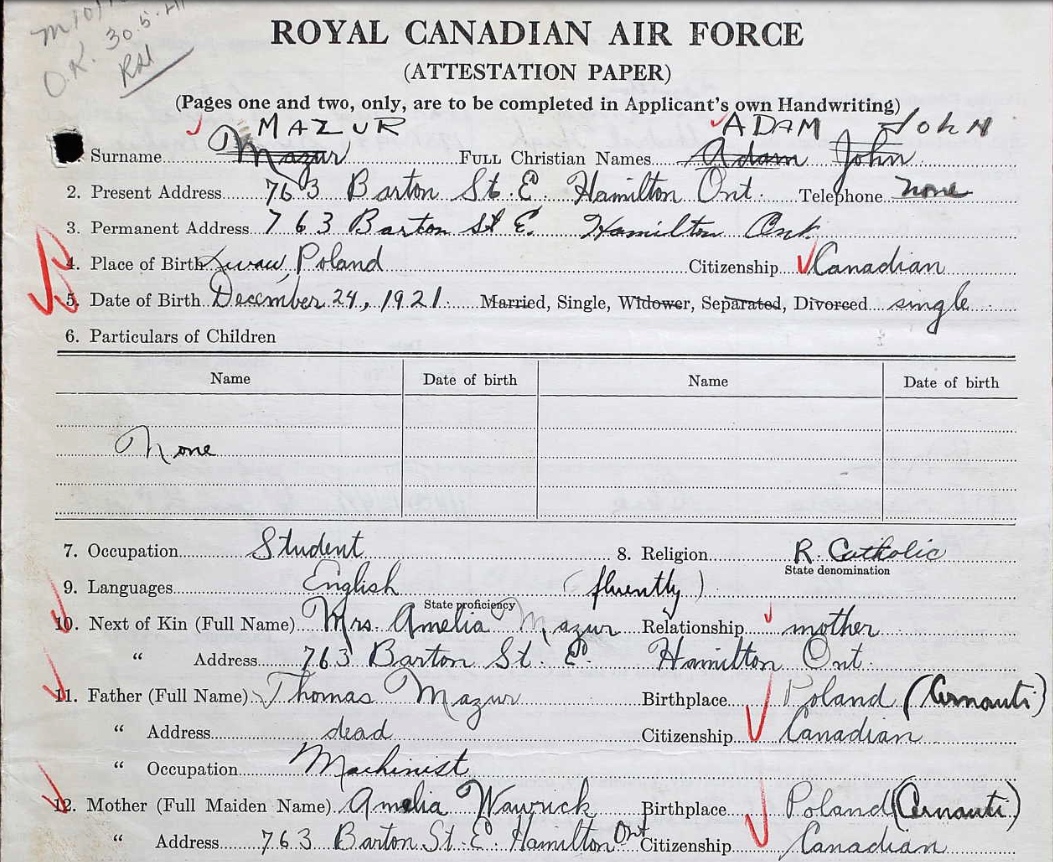 O.K. 30.5.41
ROYAL CANADIAN AIR FORCE
(ATTESTATION PAPER)
(Pages one and two, only, are to be completed in Applicant's own Handwriting)
MAZUR ADAM JOHN
Surname Mazur FULL Christian Names Adam John
2. Present Address 763 Barton St. E. Hamilton Ont. Telephone none
3. Permanent Address 763 Barton St E. Hamilton Ont.
4. Place of Birth Poland Citizenship Canadian
5. Date of Birth December 24, 1921. Married, Single, Widower, Separated, Divorced single
6. Particulars of Children
Name Date of birth Name Date of birth
None
7. Occupation Student 8. Religion R. Catholic
State denomination
9. Languages English (fluently)
State proficiency
10. Next of Kin (Full Name) Mrs. Amelia Mazur Relationship mother
“ Address 763 Barton St. E. Hamilton Ont.
11. Father (Full Name) Thomas Mazur Birthplace Poland (Cernauti)
“ Address dead Citizenship Canadian
“ Occupation Machinist
12. Mother (Full Maiden Name) Amelia Wawrick Birthplace Poland (Cernauti)
“ Address 763 Barton St. E. Hamilton Ont Citizenship Canadian